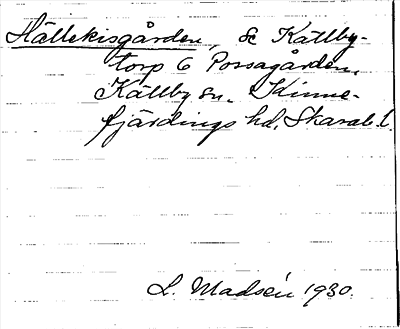 Hällekisgården, se Källby-
torp 6 Possagården,
Källby sn. Kinne-
fjärdings hd, Skarab. l.
L. Madsén 1930.